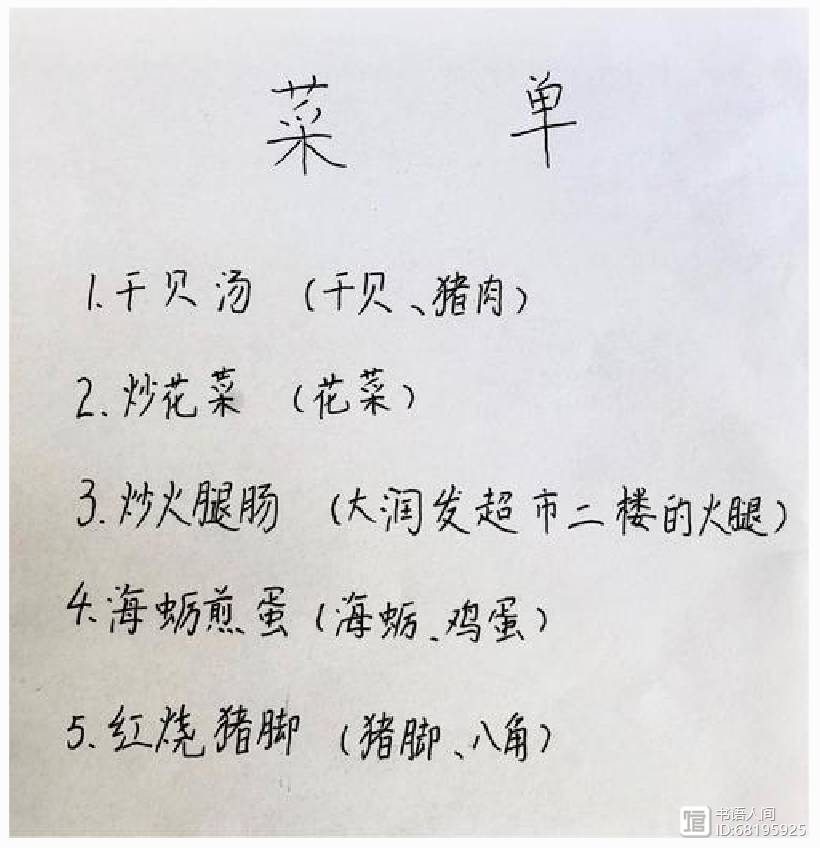 菜 单
1.干贝汤 (干贝、猪肉)
2.炒花菜 (花菜)
3.炒火腿肠 (大润发超市二楼的火腿)
4.海蛎煎蛋(海蛎、鸡蛋)
5.红烧猪脚 (猪脚、八角)
馆 书语人间
ID:68195925